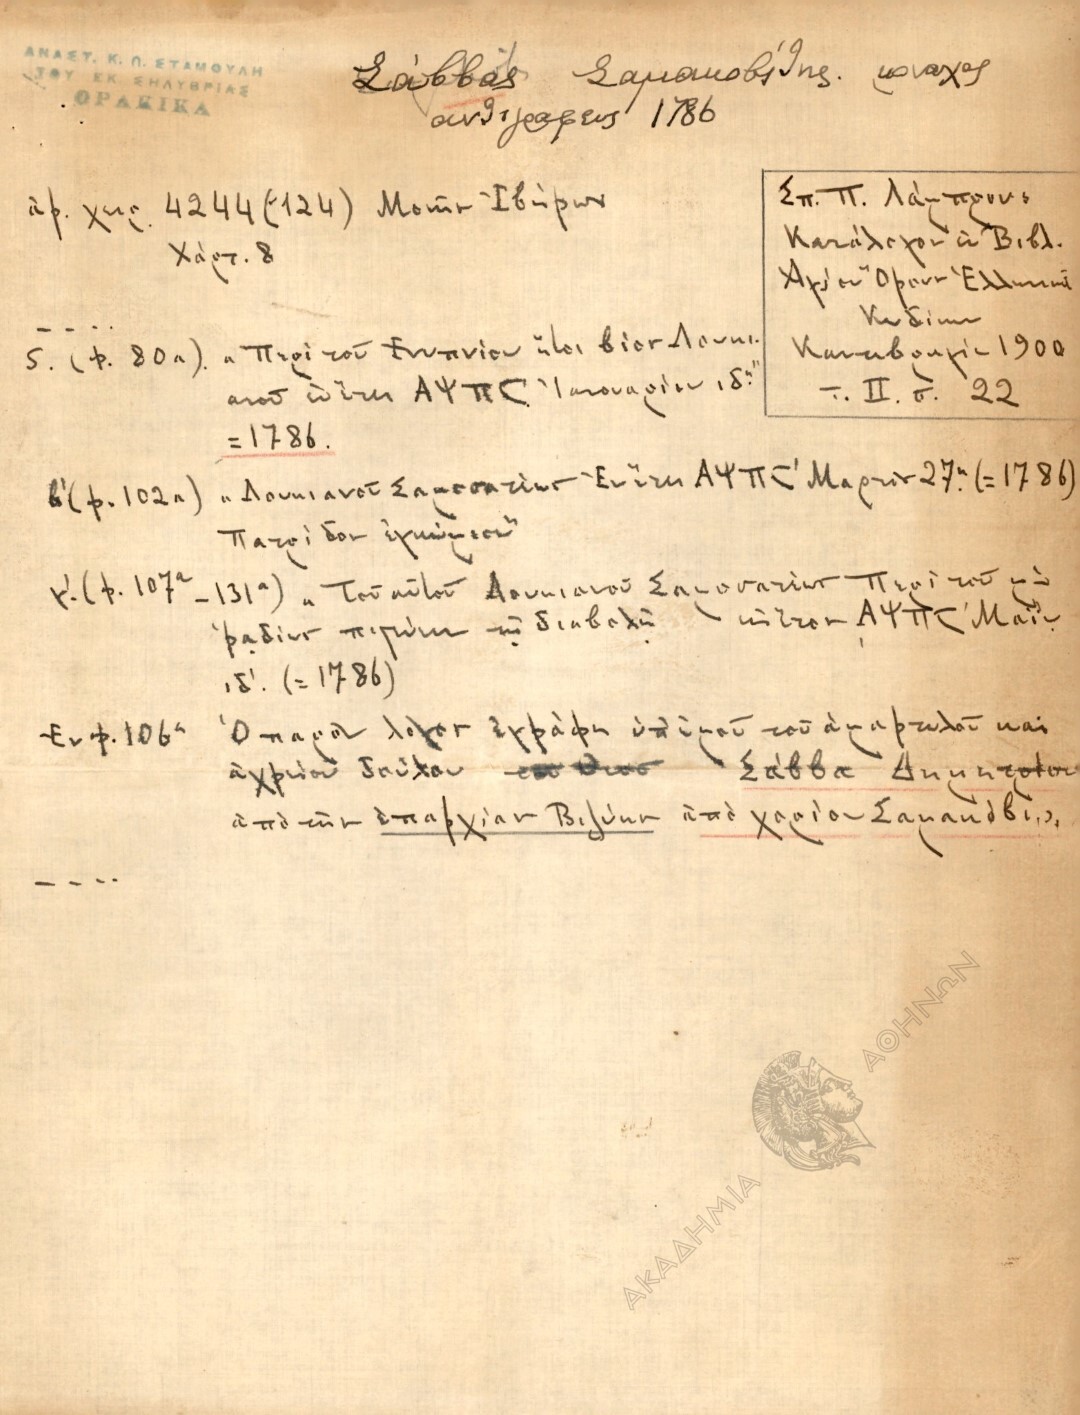 ΑΝΑΣΤ. Κ. Π. ΣΤΑΜΟΥΛΗ
ΤΟΥ ΕΚ ΣΗΛΥΒΡΙΑΣ
ΘΡΑΚΙΚΑ
Σάββας Σαμακοβίτης. μοναχος
αντιγραφευς 1786
ἀρ. χειρ. 4244 (124) Μονῆς Ἰβήρων
Χάρτ. 8
Σπ. Π. Λάμπρου
Κατάλογος ἐν Βιβλ.
Ἁγίου Ὄρους Ἑλληνικῶν
Κωδίκων
Κανταβριγίᾳ 1900
τ. II. σ. 22
5. (φ. 80α). „Περὶ τοῦ Ἐνυπνίου ἤτοι βίος Λουκι-
ανοῦ ἐν ἔτει ΑΨΠϚ Ἰανουαρίου ιδῃ"
= 1786.
6 (φ. 102α) „Λουκιανοῦ Σαμοσατέως Ἐν ἔτει ΑΨΠϚ' Μαρτίου 27ῃ (= 1786)
Πατρίδος ἐγκώμιον"
γ'. (φ. 107α – 131α) „Τοῦ αὐτοῦ Λουκιανοῦ Σαμοσατέως Περὶ τοῦ μὴ
ῥᾳδίως πιστεύειν τῇ διαβολῇ ἔτος ΑΨΠϚ' Μαΐου
ιδ'. (= 1786)
Ἐν φ. 106α Ὁ παρὸν λόγος ἐγράφη ὑπ' ἐμοῦ τοῦ ἁμαρτωλοῦ και
ἀχρείου δούλου του Θεου Σάββα Δημητρίου
ἀπὸ τὴν ἐπαρχίαν Βιζύης ἀπὸ χορίον Σαμακόβι
ΑΚΑΔΗΜΙΑ ΑΘΗΝΩΝ